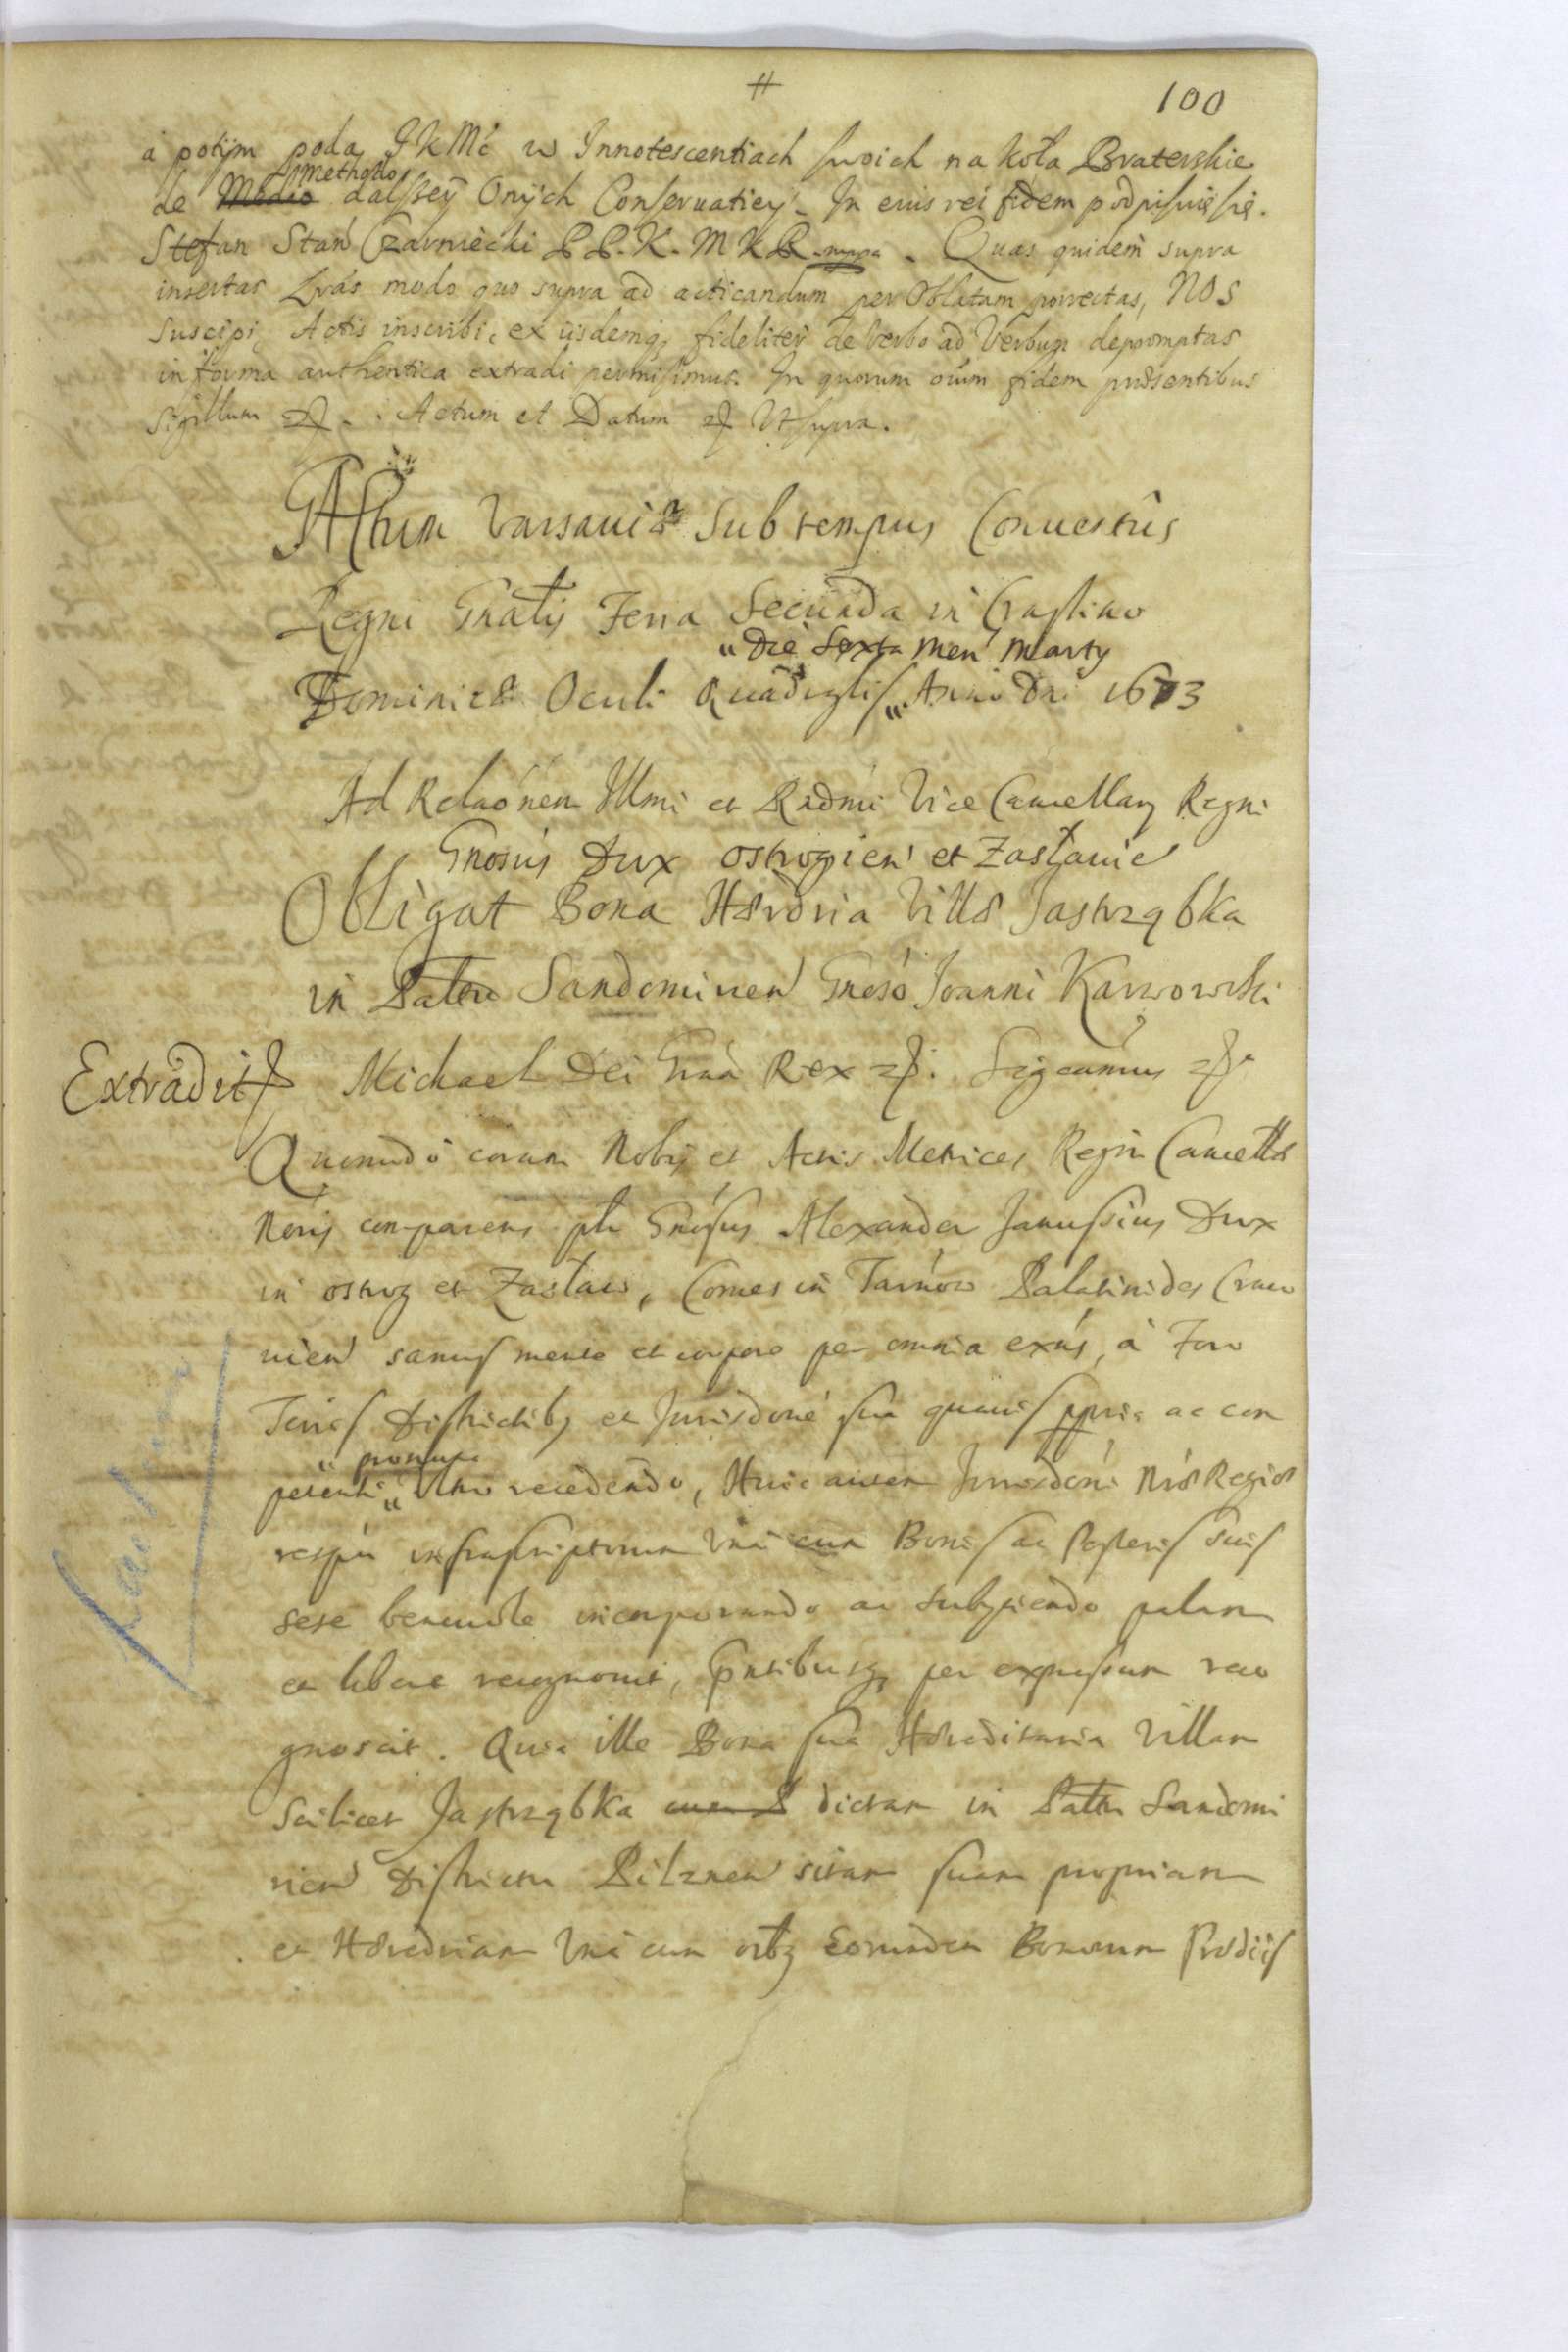 #
100
á potÿm poda J K Mć w Innotescentiach swoich na koła Braterskie
methodo
de Medio dalszeÿ Onÿch Conservatieÿ. In cuius rei fidem podpisuię się.
Stefan Stan Czarniecki P P. K. M K R mppa. Quas quidem supra
insertas Lras modo quo supra ad acticandum per Oblatam porrectas, NOS
suscipi, Actis inscribi, ex iisdemq fideliter de verbo ad Verbum depromptas
in forma authentica extradi permisimus. In quorum oium fidem præsentibus
Sigillum etc. Actum et Datum etc Ut supra.
Actum Varsaviæ Sub tempus Conventus
Regni Gnalis Feria Secunda in Crastino
" Die Sexta Men Marty
Dominicæ Oculi Quadraglis " Anno Dni 1673
Ad Relaonem Illmi et Rndmi Vice Cancellary Regni
Gnosus Dux Ostrogien et Zasławie
Obligat Bona Hærdria Villæ Jastrząbka
in Pattu Sandomirien Gnoso Joanni Karwowski
Extradit
Michael Dei Gra Rex etc. Sigcamus etc
Quomodo coram Nobis et Actis Metrices Regni Cancellæ
Nris comparens plr Gnosus Alexander Janussius Dux
in Ostrog et Zasław, Comes in Tarnow Palatinides Craco
vien sanus mente et corpore per omnia exns, à Foro
Terris Districtibq et Jurisdone sua quavis ppria ac com
" pronunc
petenti " Ultro recedendo, Huic autem Jurisdoni Nræ Regiæ
respu infrascriptorum Unà cum Bonis ac Posteris suis
sese benevole incorporando ac subyciendo palam
et libere recognovit, Pntibusq per expressum reco
gnoscit. Quia ille Bona sua Hæreditaria Villam
Scilicet Jastrząbka dictam in Pattu Sandomi
rien Districtu Pilznen sitam suam propriam
et Hæredriam Unà cum oibq Eorundem Bonorum Prædiis